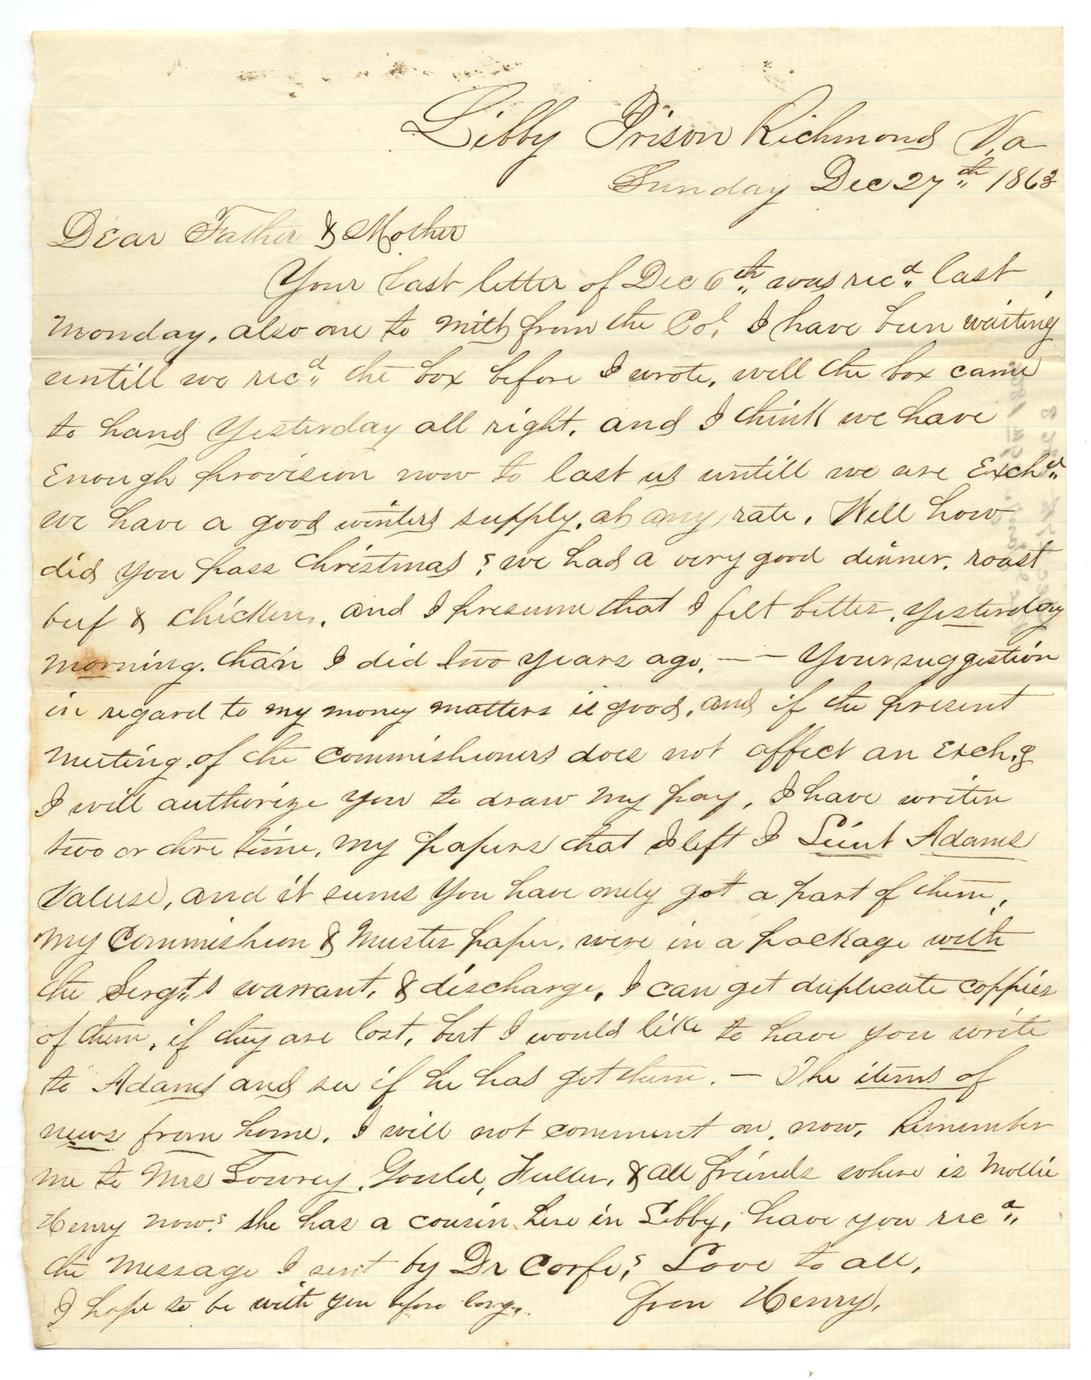 Libby Prison Richmond Va
Sunday Dec 27th 1863
Dear Father & Mother
Your last letter of Dec 6th was recd last
Monday, also one to Mith from the Col. I have been waiting
untill we recd the box before I wrote, well the box came
to hand Yesterday all right, and I think we have
Enough provision now to last us untill we are Exchd
we have a good winters supply, at any rate. Well how
did you pass Christmas? we had a very good dinner, roast
beef & chicken, and I presume that I felt better, Yesterday
morning, than I did two years ago, — — Your suggestion
in regard to my money matters is good, and if the present
meeting of the commishioners does not affect an Exchg
I will authorize you to draw my pay, I have writen
two or thre time, my papers that I left I Leiut Adams
Valuse, and it sums you have only got a part of them,
my Commishion & Muster paper, were in a package with
the Sergts warrant, & discharge, I can get duplicate coppies
of them, if they are lost, but I would like to have you write
to Adams and see if he has got them. — The items of
news from home, I will not comment on, now, Remember
me to Mrs Towrey, Gould, Fuller, & all friends where is Mollie
Henry now? she has a cousin here in Libby, have you recd
the Message I sent by Dr Corfe? Love to all,
I hope to be with you before long, from Henry,